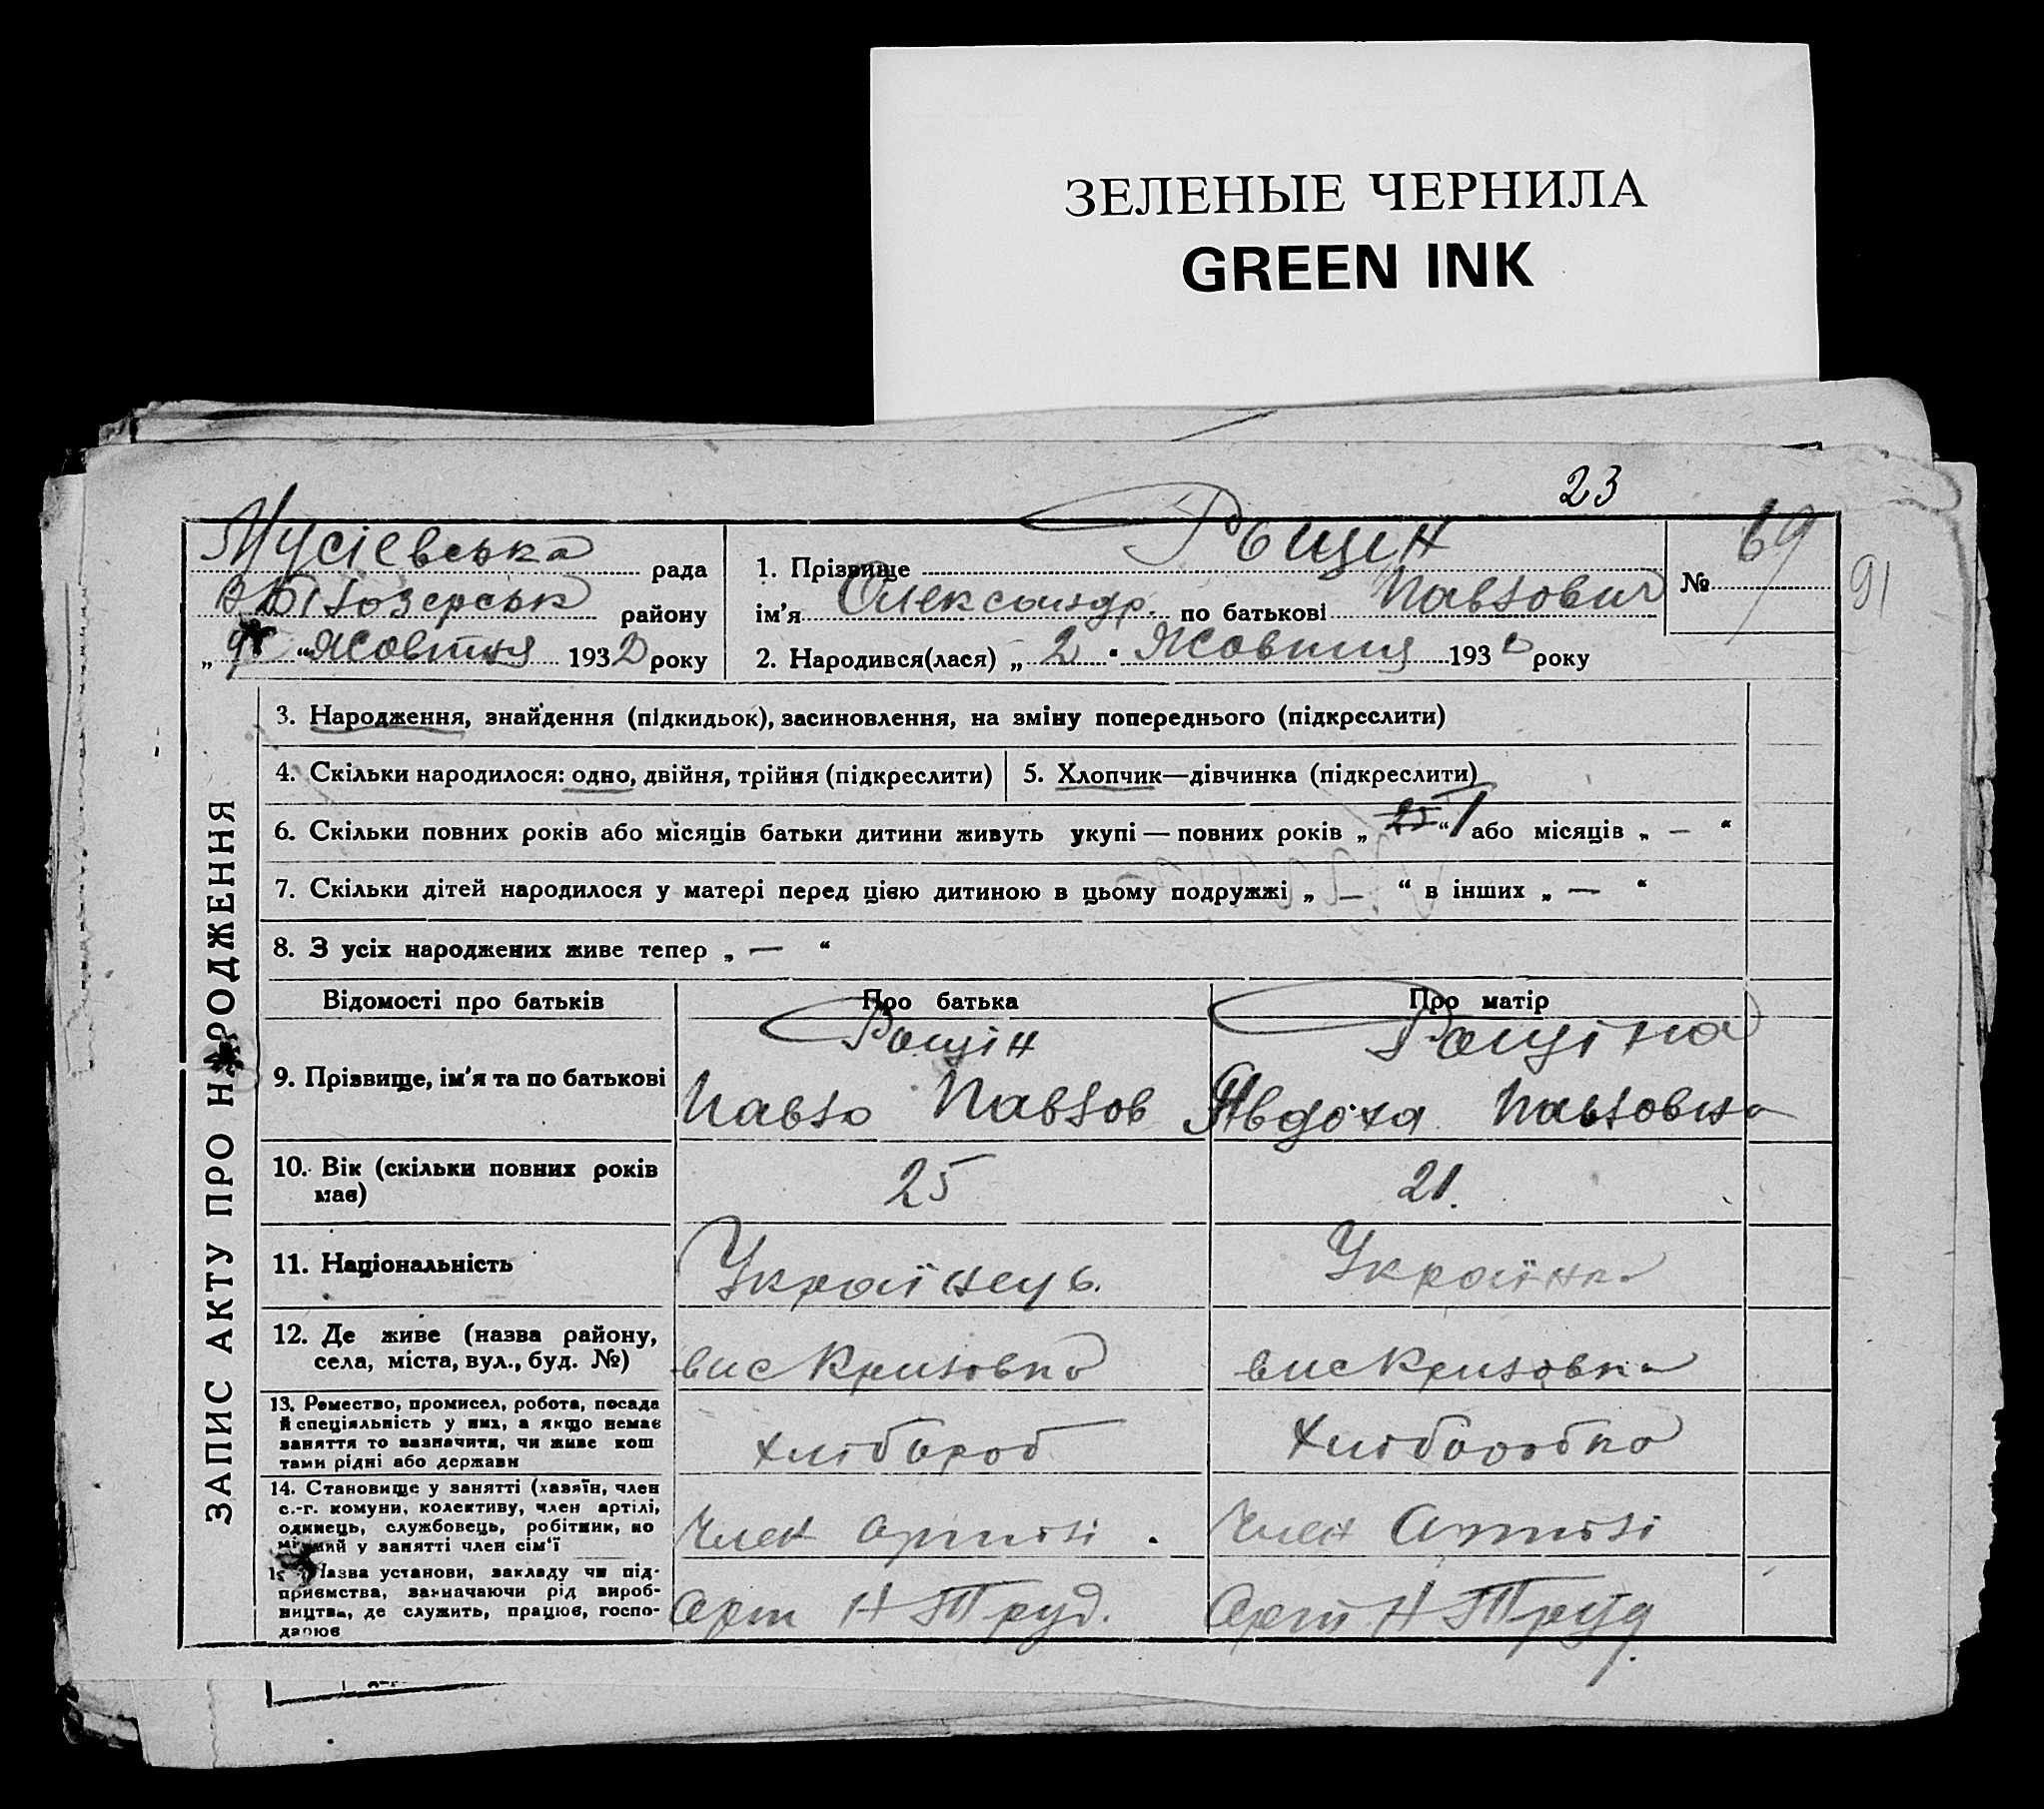 ЗЕЛЕНЫЕ ЧЕРНИЛА
GREEN INK
23
Мусієвська рада
В Білозерськ району
„ 9 “ Жовтня 1932 року
1. Прізвище Рощін
ім'я Олександр. по батькові Павлович
№ 69
91
2. Народився(лася) „ 2 “ Жовтня 1932 року
ЗАПИС АКТУ ПРО НАРОДЖЕННЯ
3. Народження, знайдення (підкидьок), засиновлення, на зміну попереднього (підкреслити)
4. Скільки народилося: одно, двійня, трійня (підкреслити)
5. Хлопчик—дівчинка (підкреслити)
6. Скільки повних років або місяців батьки дитини живуть укупі — повних років „ 1 “ або місяців „ — “
7. Скільки дітей народилося у матері перед цією дитиною в цьому подружжі „ — “ в інших „ — “
8. З усіх народжених живе тепер „ — “
Відомості про батьків
Про батька
Про матір
9. Прізвище, ім'я та по батькові
Рощін
Павло Павлов
Рощіна
Явдоха Павловна
10. Вік (скільки повних років
має)
25
21.
11. Національність
Українець.
Українка
12. Де живе (назва району,
села, міста, вул., буд. №)
вис Кризовка
вис Кризовка
13. Ремество, промисел, робота, посада
й спеціяльність у них, а якщо немає
заняття то зазначити, чи живе кош
тами рідні або держави
хлібороб
хліборобка
14. Становище у занятті (хазяїн, член
с.-г. комуни, колективу, член артілі,
одинець, службовець, робітник, по
мічний у занятті член сім'ї
Член артілі.
Член Артілі
15. Назва установи, закладу чи під-
приємства, зазначаючи рід вироб-
ництва, де служить, працює, госпо-
дарює
Арт Н Труд.
Арт Н Труд.